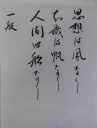 思想は風なり
知識は帆なり
人間は船なり
一般